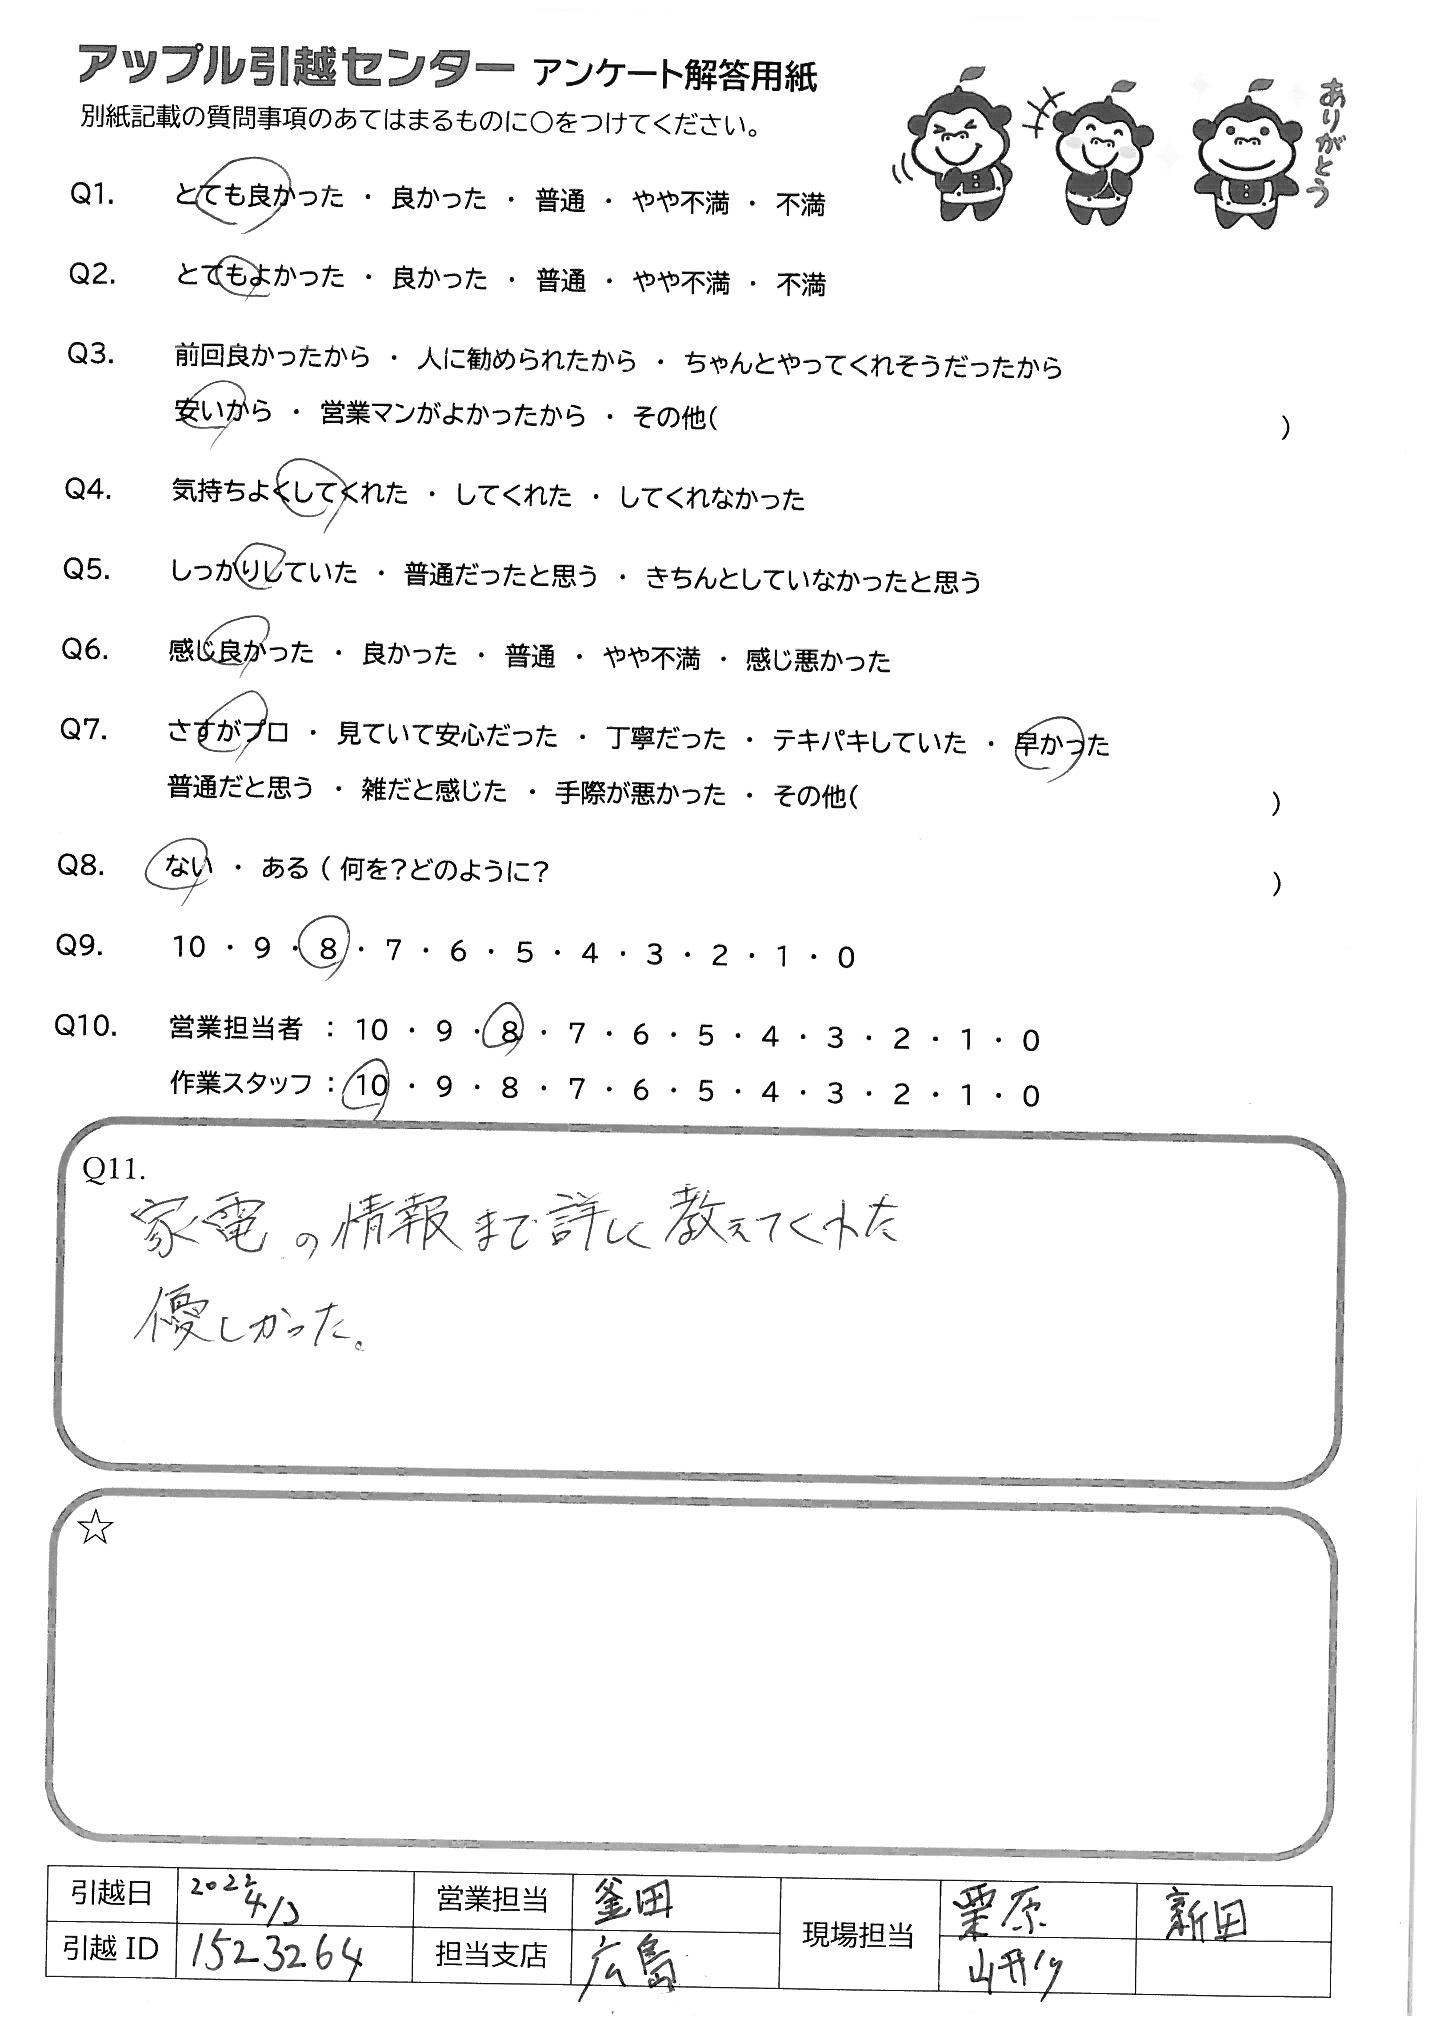 アップル引越センター アンケート解答用紙
別紙記載の質問事項のあてはまるものに〇をつけてください。
ありがとう
Q1. とても良かった ・ 良かった ・ 普通 ・ やや不満 ・ 不満
Q2. とてもよかった ・ 良かった ・ 普通 ・ やや不満 ・ 不満
Q3. 前回良かったから ・ 人に勧められたから ・ ちゃんとやってくれそうだったから
安いから ・ 営業マンがよかったから ・ その他( )
Q4. 気持ちよくしてくれた ・ してくれた ・ してくれなかった
Q5. しっかりしていた ・ 普通だったと思う ・ きちんとしていなかったと思う
Q6. 感じ良かった ・ 良かった ・ 普通 ・ やや不満 ・ 感じ悪かった
Q7. さすがプロ ・ 見ていて安心だった ・ 丁寧だった ・ テキパキしていた ・ 早かった
普通だと思う ・ 雑だと感じた ・ 手際が悪かった ・ その他( )
Q8. ない ・ ある ( 何を?どのように? )
Q9. 10 ・ 9 ・ 8 ・ 7 ・ 6 ・ 5 ・ 4 ・ 3 ・ 2 ・ 1 ・ 0
Q10. 営業担当者 : 10 ・ 9 ・ 8 ・ 7 ・ 6 ・ 5 ・ 4 ・ 3 ・ 2 ・ 1 ・ 0
作業スタッフ : 10 ・ 9 ・ 8 ・ 7 ・ 6 ・ 5 ・ 4 ・ 3 ・ 2 ・ 1 ・ 0
Q11.
家電の情報まで詳しく教えてくれた
優しかった。
☆
引越日 2022 営業担当 釜田 現場担当 栗原 新田
引越 ID 1523264 担当支店 広島